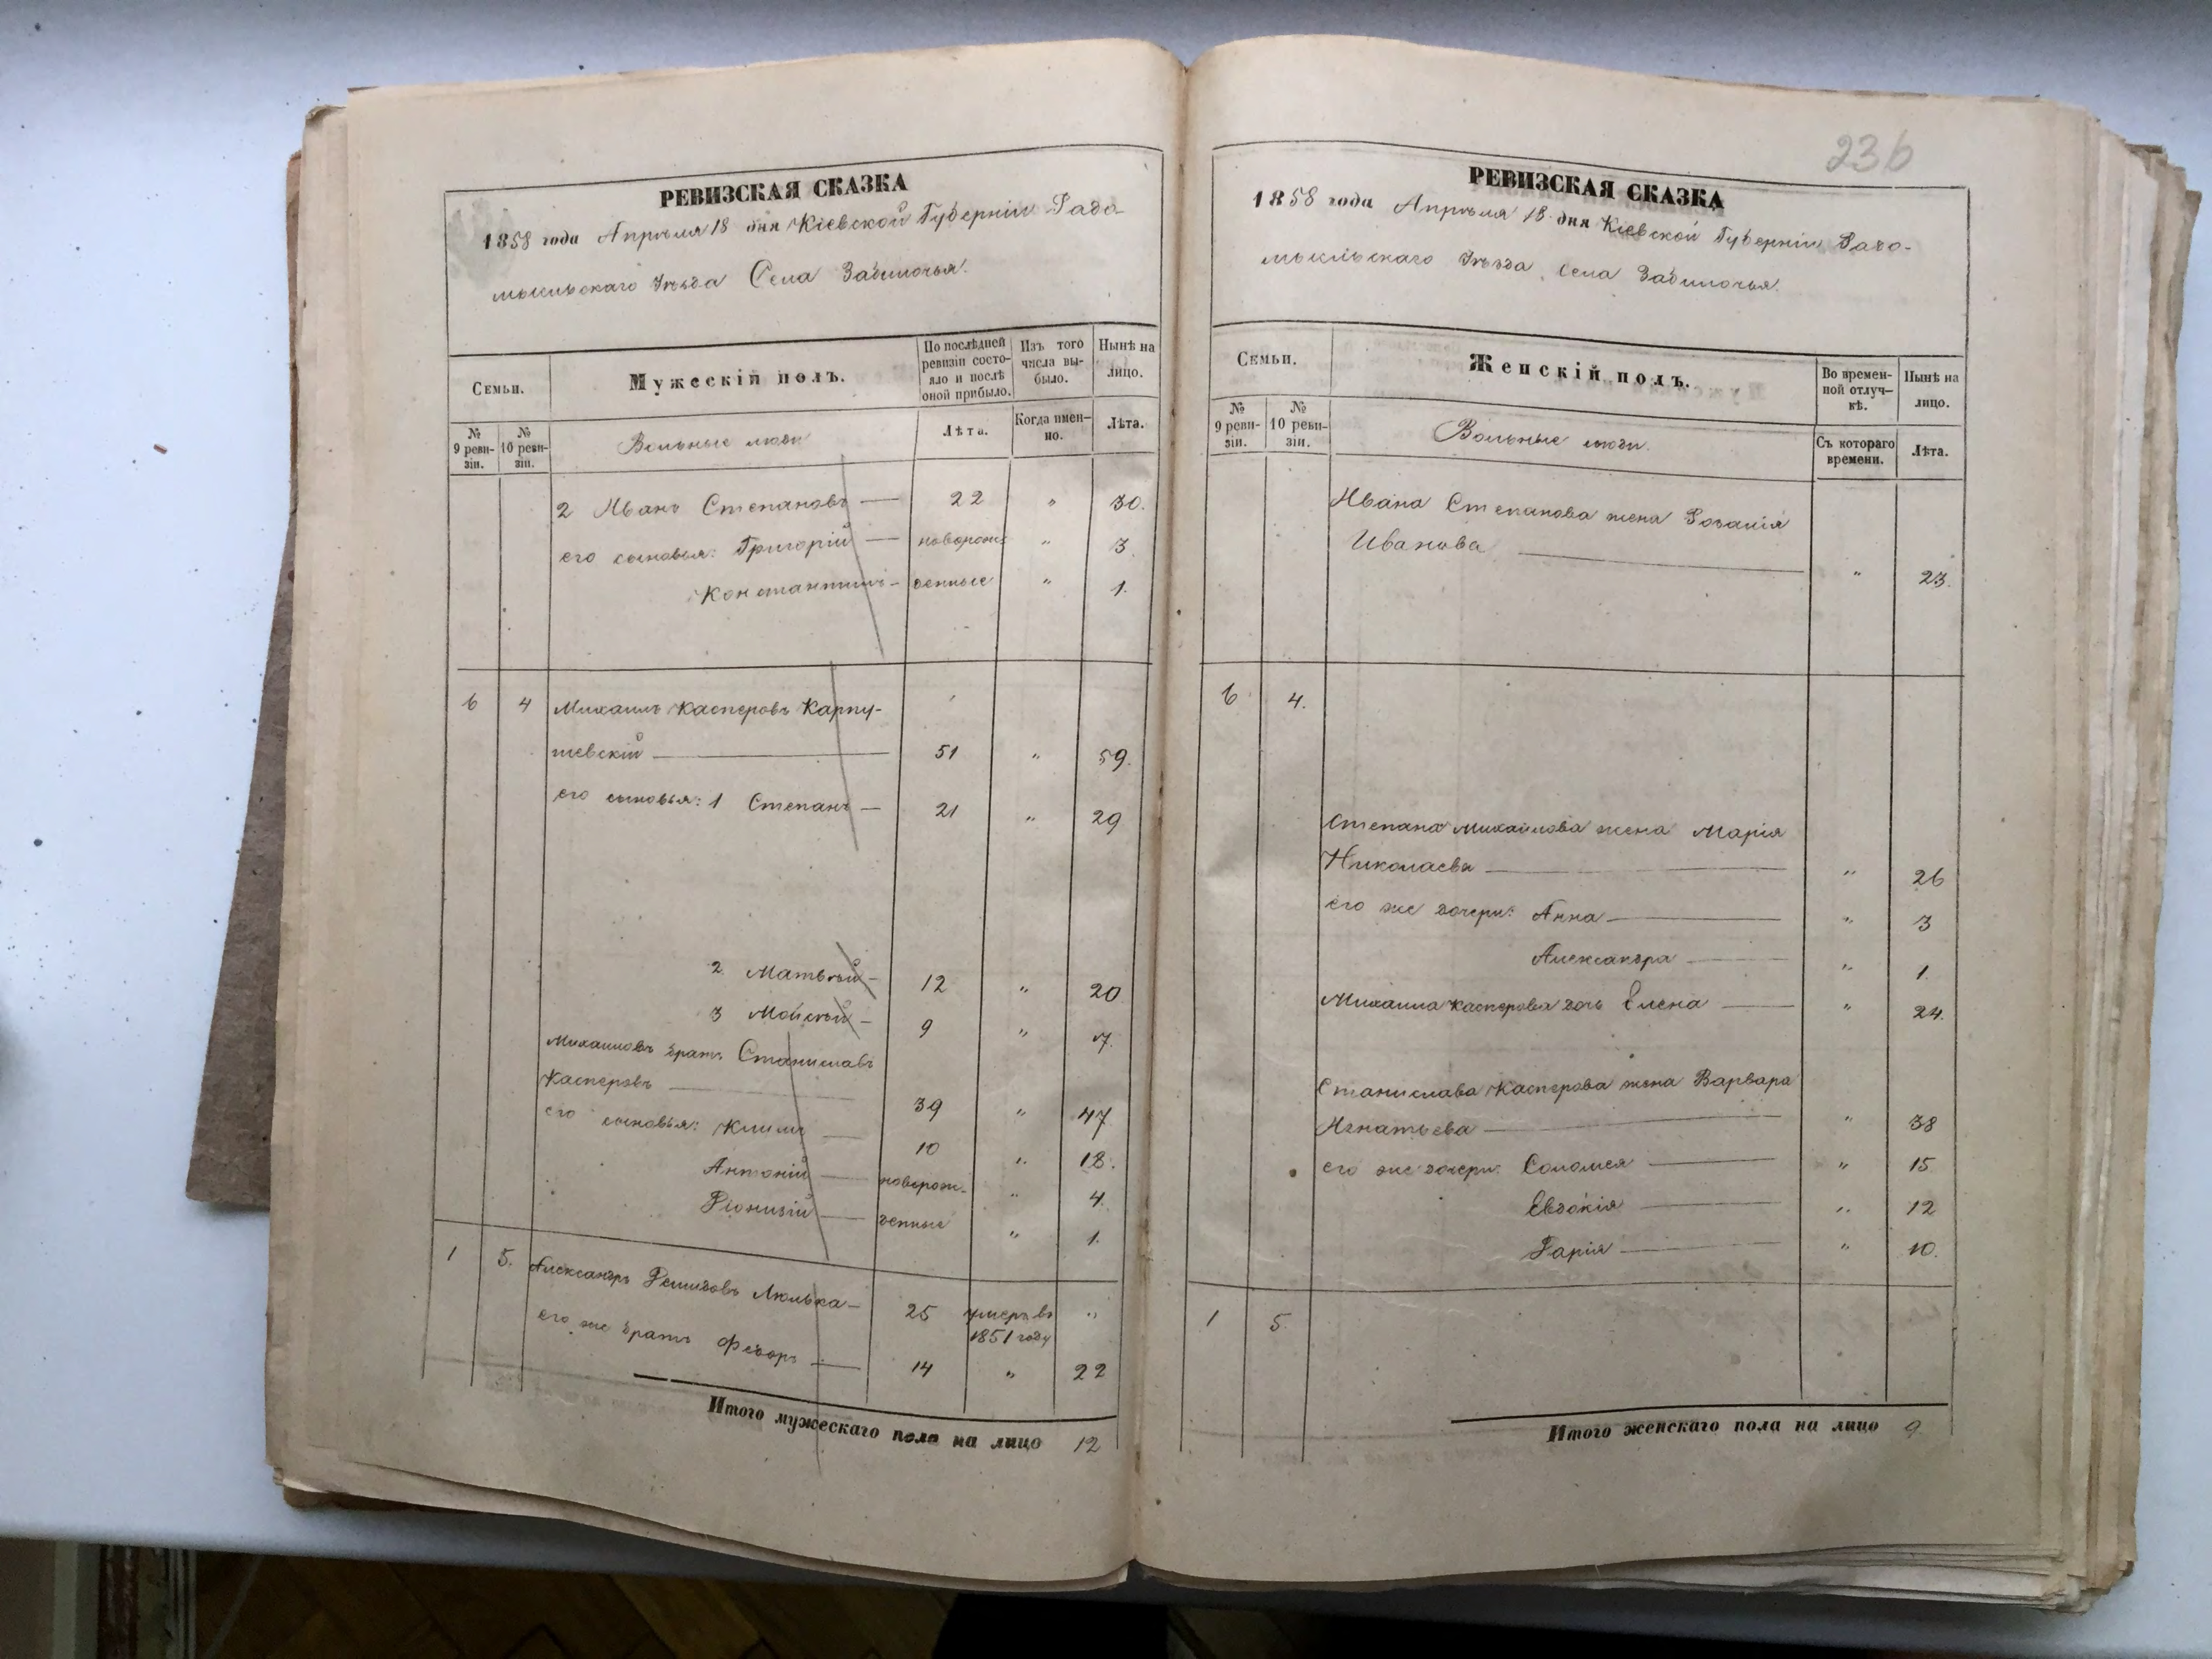 РЕВИЗСКАЯ СКАЗКА
1858 года Апрѣля 18 дня Кіевской Губерніи Радо-
мысльскаго Уѣзда Села Забилочья.
Семьи.
Мужескій полъ.
По послѣдней ревизіи состо-яло и послѣ оной прибыло.
Изъ того числа вы-было.
Нынѣ на лицо.
№ 9 реви-зіи.
№ 10 реви-зіи.
Вольные люди
Лѣта.
Когда имен-но.
Лѣта.
2 Иванъ Степановъ — 22 " 30.
его сыновья: Григорій — новорож " 3.
Константинъ — денные " 1.
6 4 Михаилъ Касперовъ Карпу-
шевскій — 51 " 59.
его сыновья: 1 Степанъ — 21 " 29
2 Матвѣй — 12 " 20
3 Мойсѣй — 9 " 7.
Михаиловъ братъ Станиславъ
Касперовъ — 39 " 47
его сыновья: Климъ — 10 " 18.
Антоній — новорож- " 4.
Діонизій — денные " 1.
1 5. Александръ Демидовъ Люлька — 25 умеръ въ 1851 году "
его же братъ Федоръ — 14 " 22
Итого мужескаго пола на лицо 12
236
РЕВИЗСКАЯ СКАЗКА
1858 года Апрѣля 18 дня Кіевской Губерніи Радо-
мысльскаго Уѣзда Села Забилочья.
Семьи.
Женскій полъ.
Во времен-ной отлуч-кѣ.
Нынѣ на лицо.
№ 9 реви-зіи.
№ 10 реви-зіи.
Вольные люди.
Съ котораго времени.
Лѣта.
Ивана Степанова жена Розалія
Иванова — " 23.
6 4.
Степана Михайлова жена Марія
Николаева — " 26
его же дочери: Анна — " 3
Александра — " 1.
Михаила Касперова дочь Елена — " 24.
Станислава Касперова жена Варвара
Игнатьева — " 38
его же дочери: Соломея — " 15
Евдокія — " 12
Дарія — " 10.
1 5.
Итого женскаго пола на лицо 9